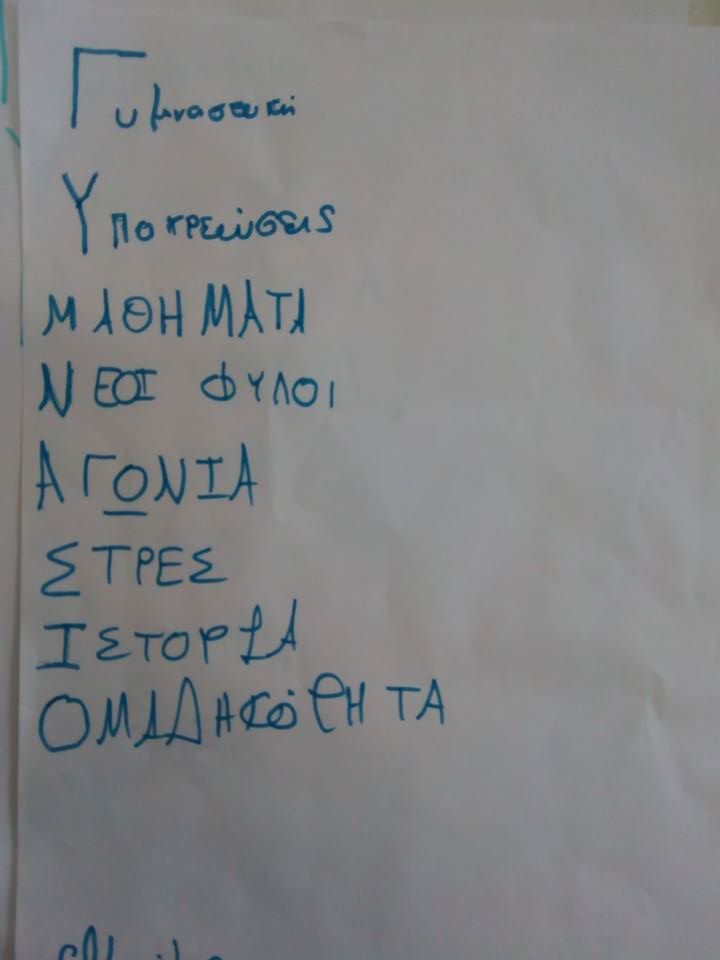 Γυμνασιακή
Υποχρεώσεις
ΜΑΘΗΜΑΤΑ
ΝΕΟΙ ΦΥΛΟΙ
ΑΓΩΝΙΑ
ΣΤΡΕΣ
ΙΣΤΟΡΙΑ
ΟΜΑΔΗΚΟΤΗΤΑ